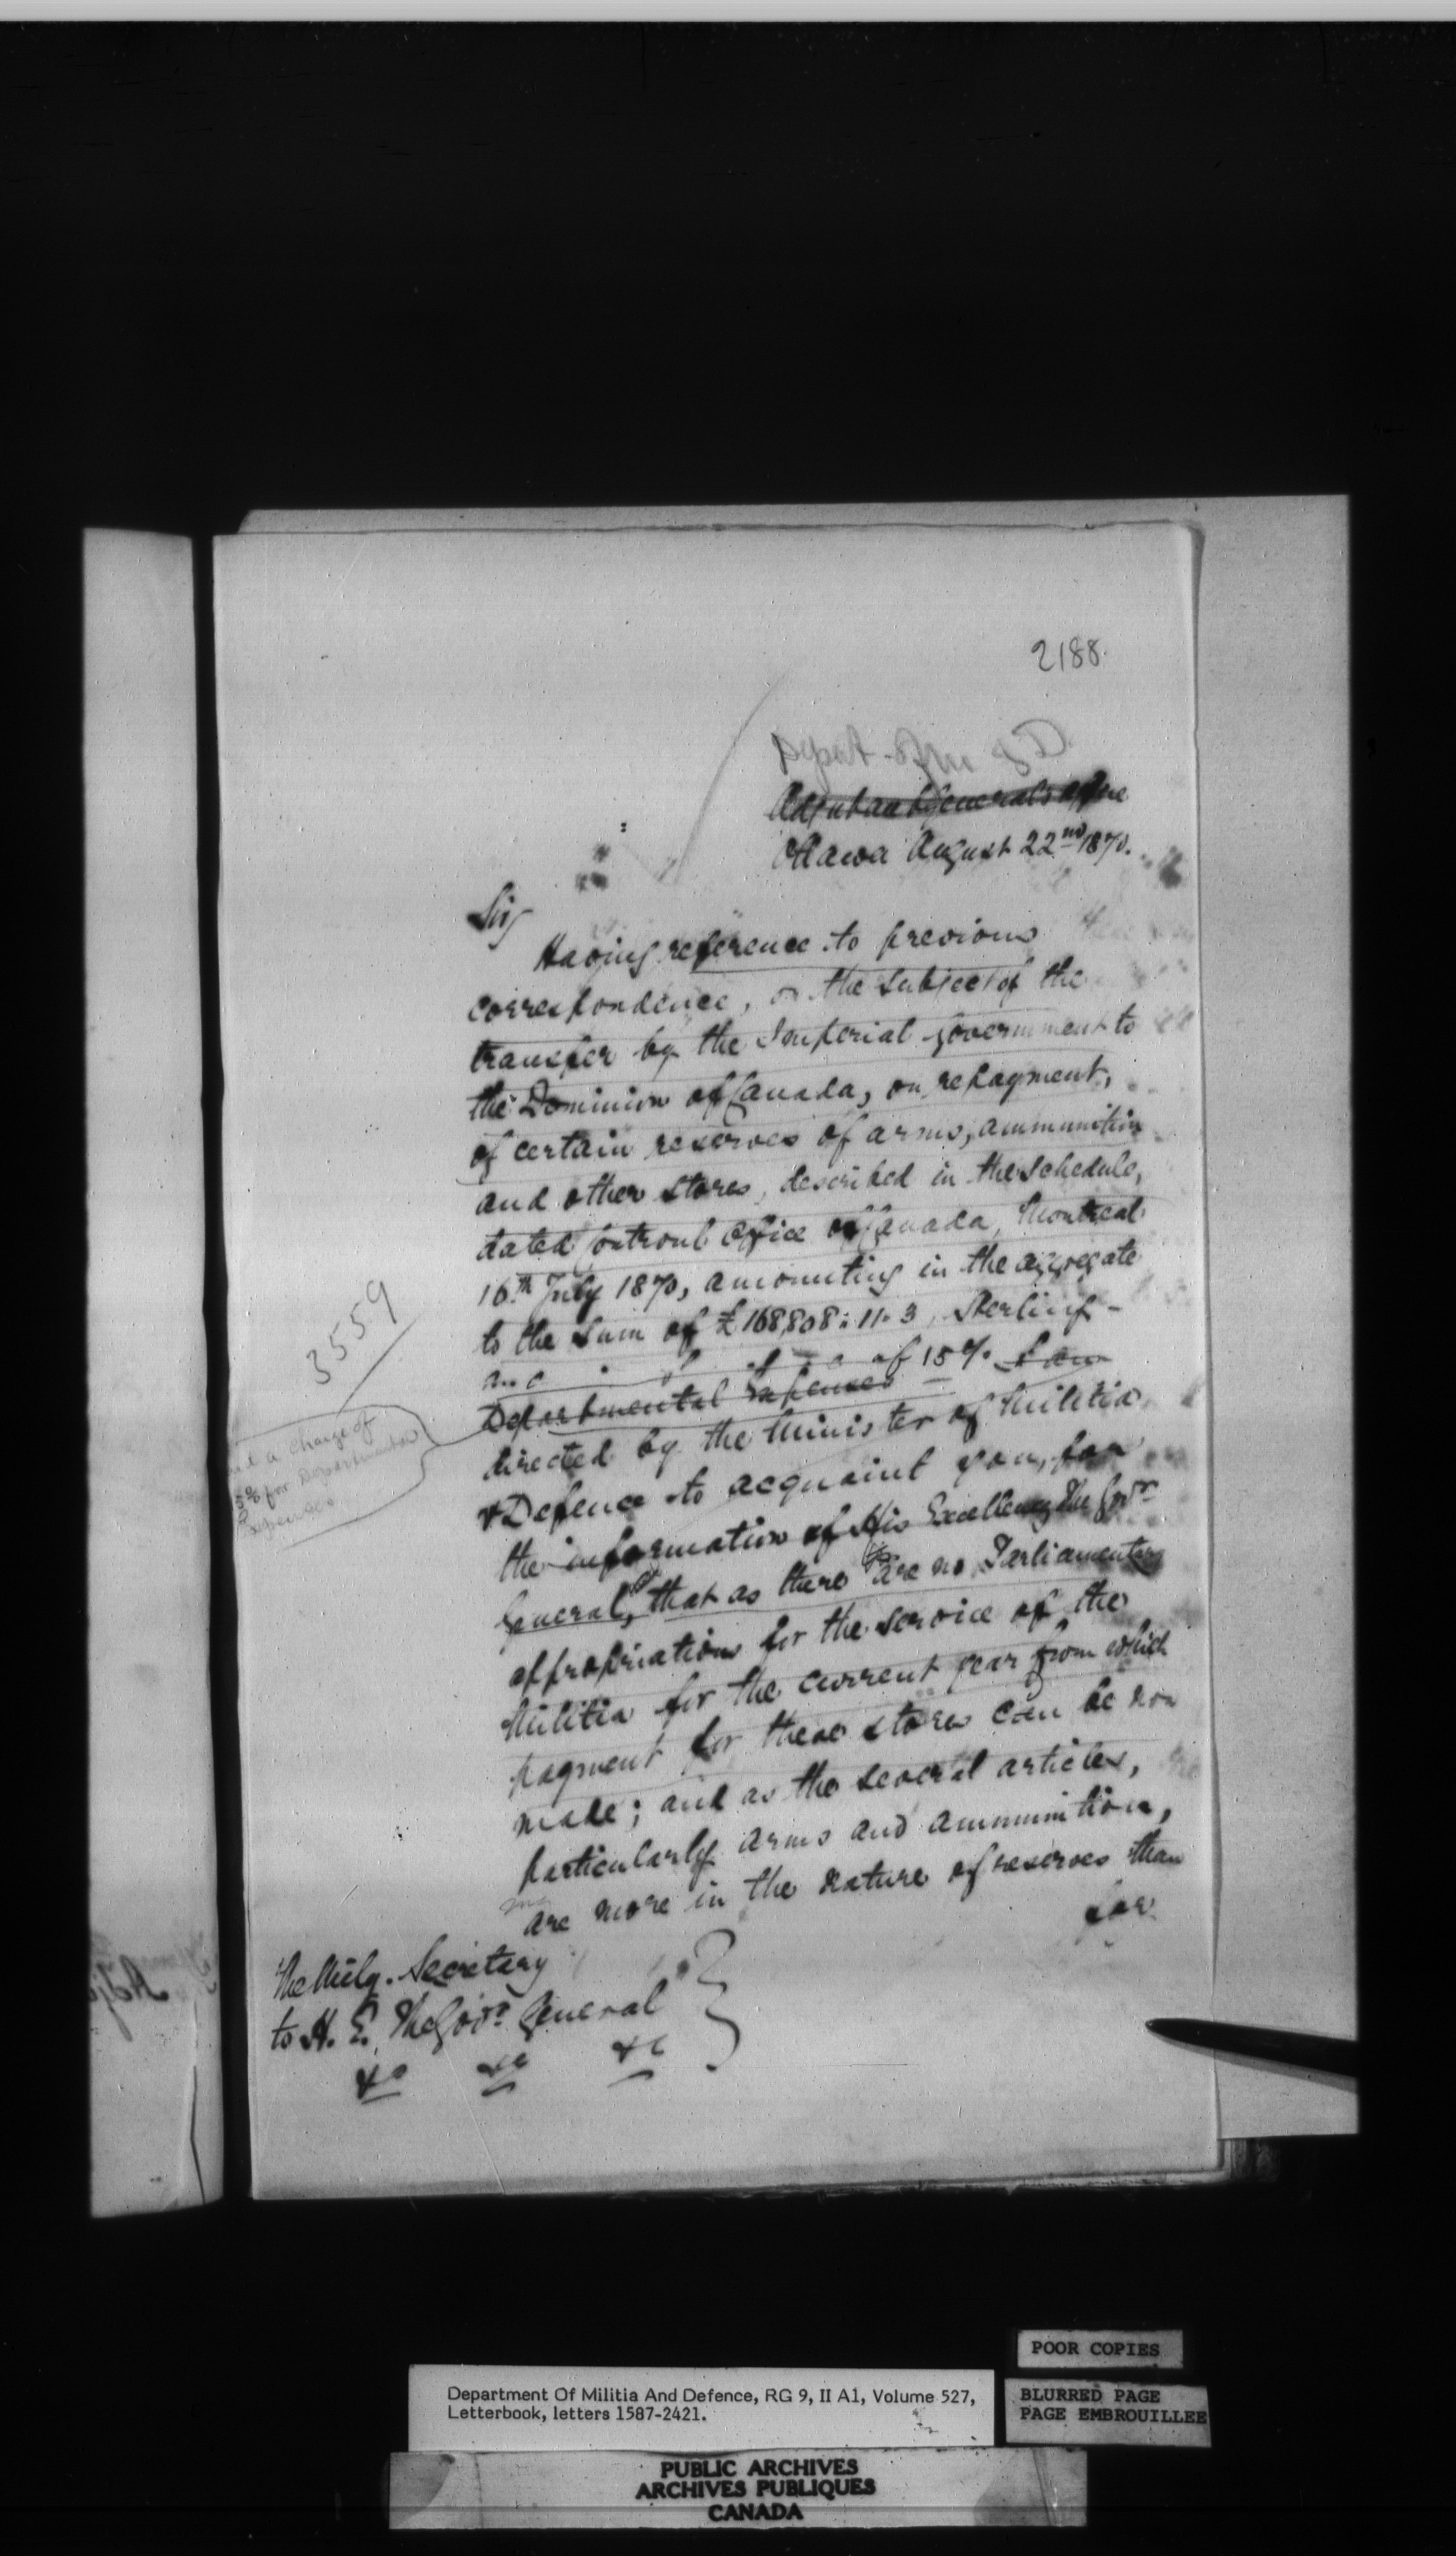 2188.
Adjutant General's Office
Ottawa August 22nd 1870.
Sir,
Having reference to previous
correspondence, on the subject of the
transfer by the Imperial Government to
the Dominion of Canada, on repayment,
of certain reserves of arms, ammunition
and other stores, described in the Schedule,
dated Controul Office of Canada, Montreal
16th July 1870, amounting in the aggregate
to the sum of £168,808:11.3 Sterling -
of 15%. I am
Departmental Expenses
directed by the Minister of Militia
& Defence to acquaint you, for
the information of His Excellency The Govr
General, that as there are no Parliamentary
appropriations for the service of the
Militia for the current year from which
payment for these stores can be now
made; and as the several articles,
particularly arms and ammunition,
are more in the nature of reserves than
for
3559
a charge of
for Departmental
Expenses
The Mily. Secretary
to H. E. The Govr General
&c &c &c
POOR COPIES
Department Of Militia And Defence, RG 9, II A1, Volume 527,
Letterbook, letters 1587-2421.
BLURRED PAGE
PAGE EMBROUILLEE
PUBLIC ARCHIVES
ARCHIVES PUBLIQUES
CANADA